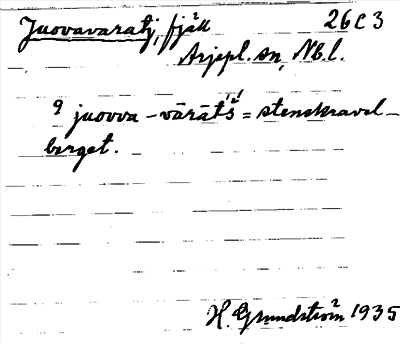 Juovavaratj, fjäll 26C3
Arjepl. sn, Nb.l.
9 juovva-vārātš = stenskravel-
berget.
H. Grundström 1935